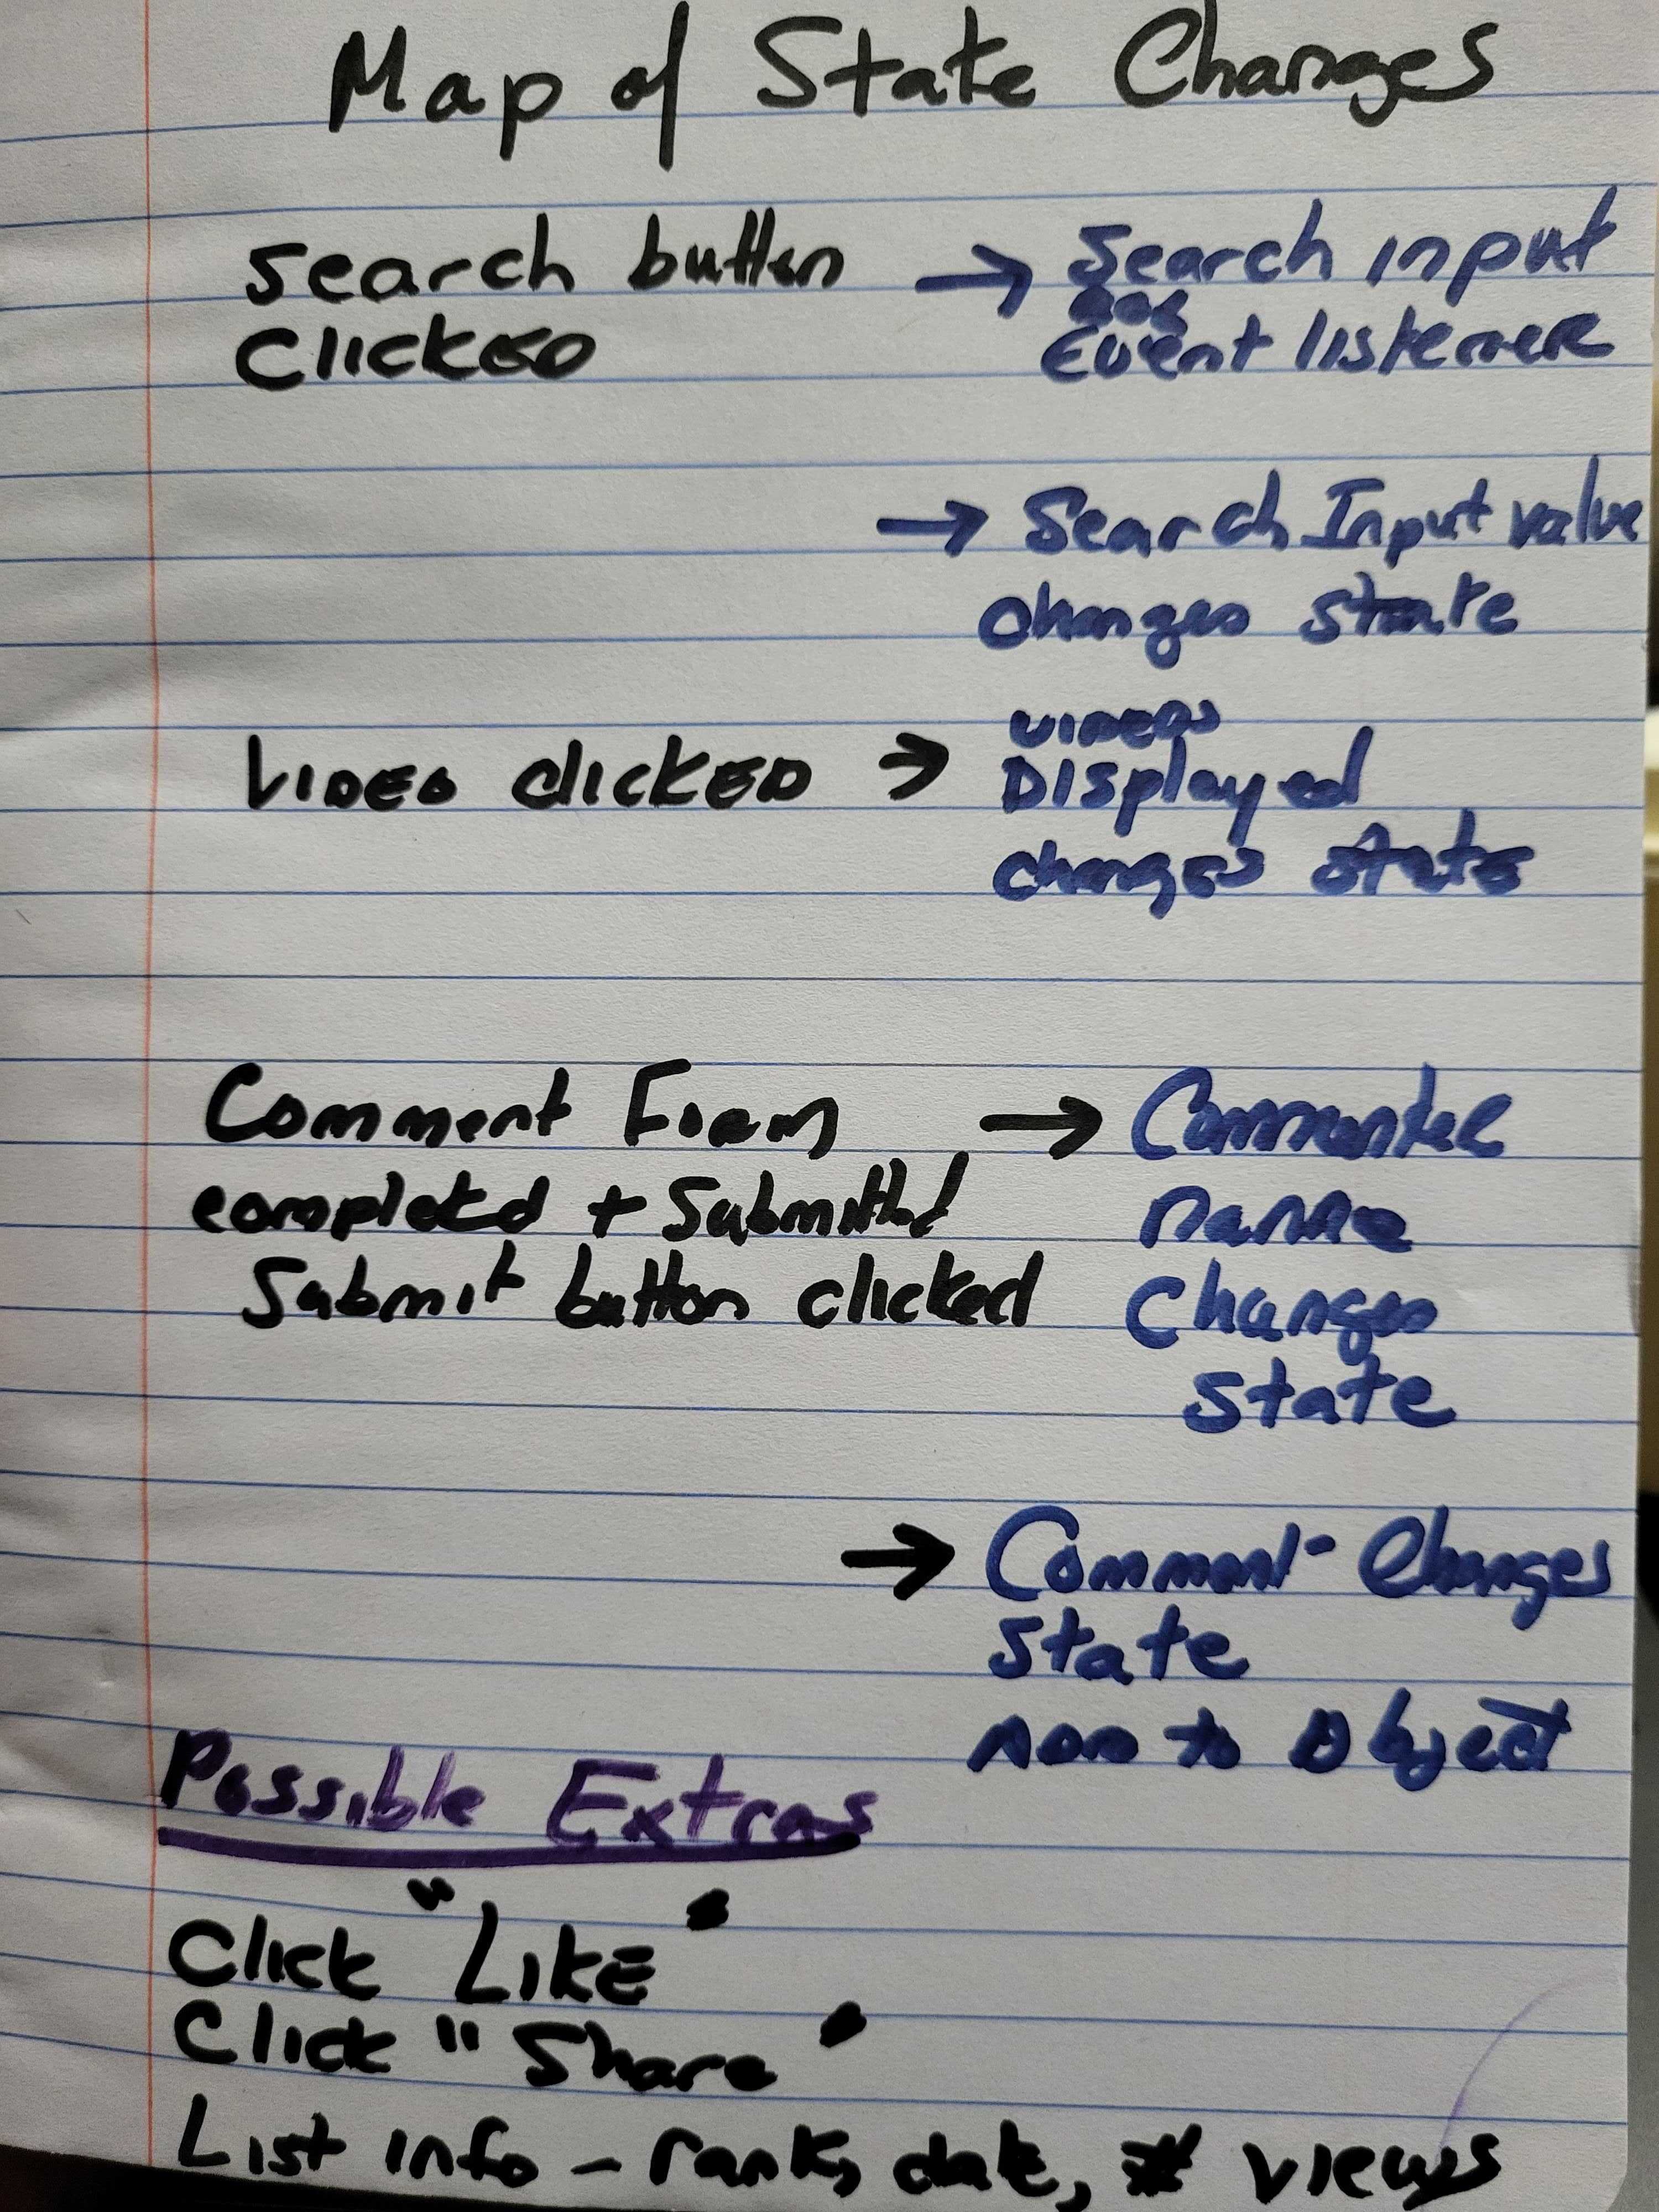 Map of State Changes
Search button → Search input
Clicked Event listener
→ Search Input value
changes state
Videos
Video clicked → Displayed
changes state
Comment Form → Commenter
completed + Submitted name
Submit button clicked Changes
state
→ Comment - Changes
State
ADD to Object
Possible Extras
Click "Like"
Click "Share"
List info - rank, date, # views